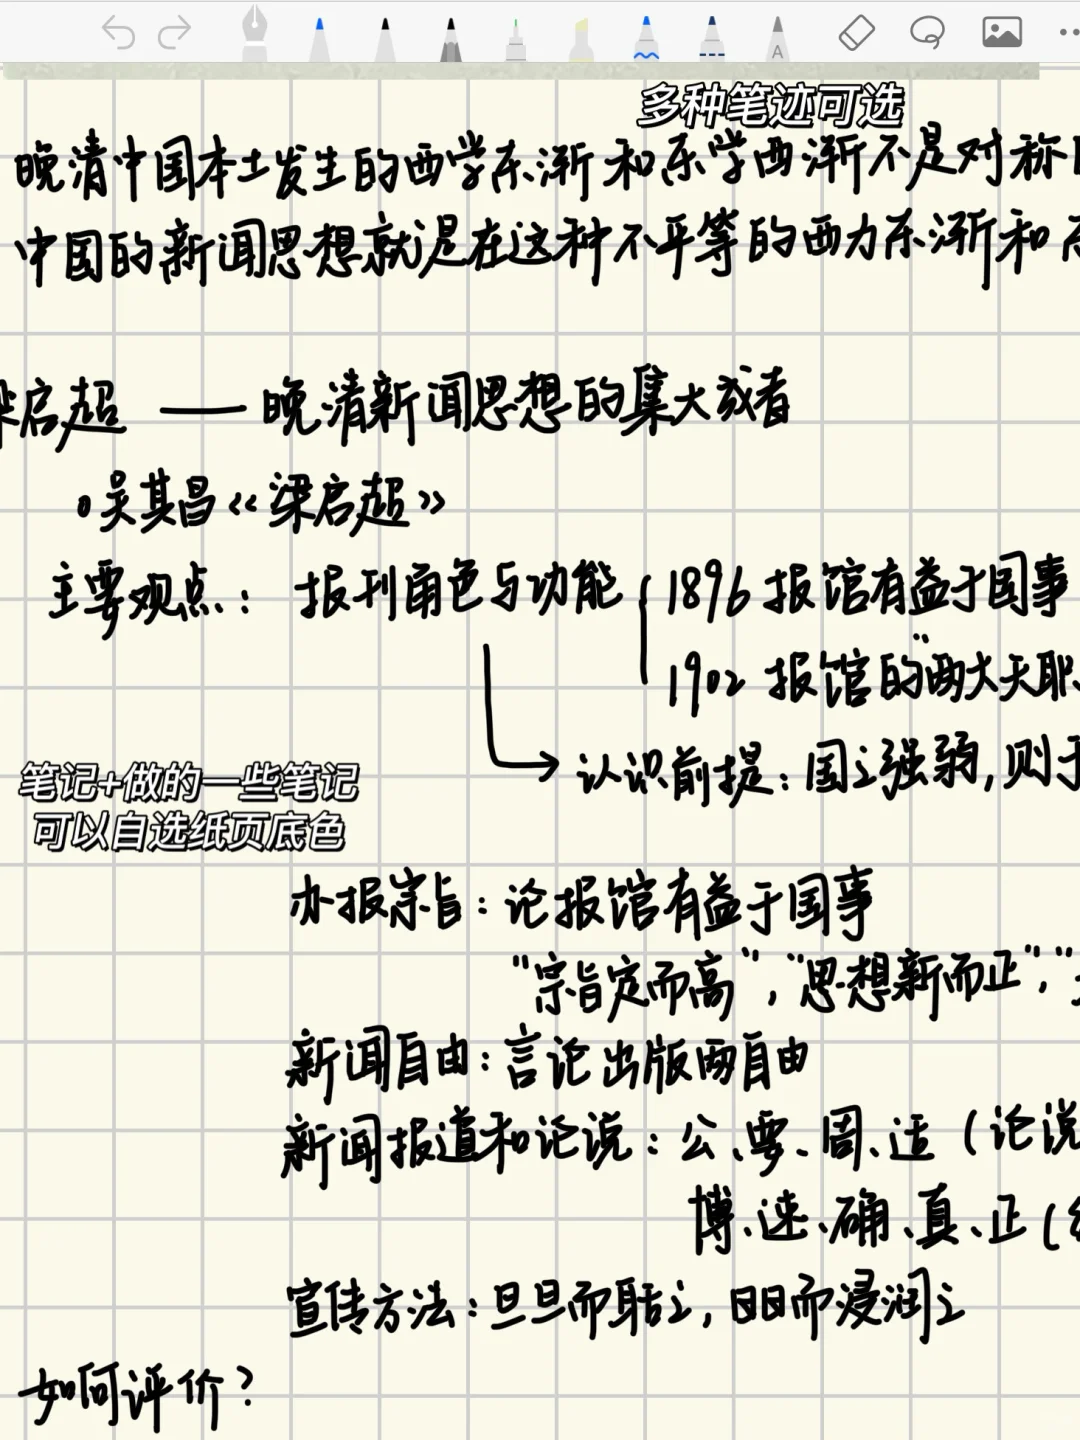 A
多种笔迹可选
晚清中国本土发生的西学东渐和东学西渐不是对称
中国的新闻思想就是在这种不平等的西力东渐和
梁启超 —— 晚清新闻思想的集大成者
吴其昌《梁启超》
主要观点：报刊角色与功能 { 1896 报馆有益于国事
1902 报馆的“两大天职
→ 认识前提：国之强弱，则于
笔记+做的一些笔记
可以自选纸页底色
办报宗旨：论报馆有益于国事
“宗旨定而高”，“思想新而正”，“
新闻自由：言论出版两自由
新闻报道和论说：公、要、周、适（论说
博、速、确、真、正（
宣传方法：旦旦而聒之，日日而浸润之
如何评价？